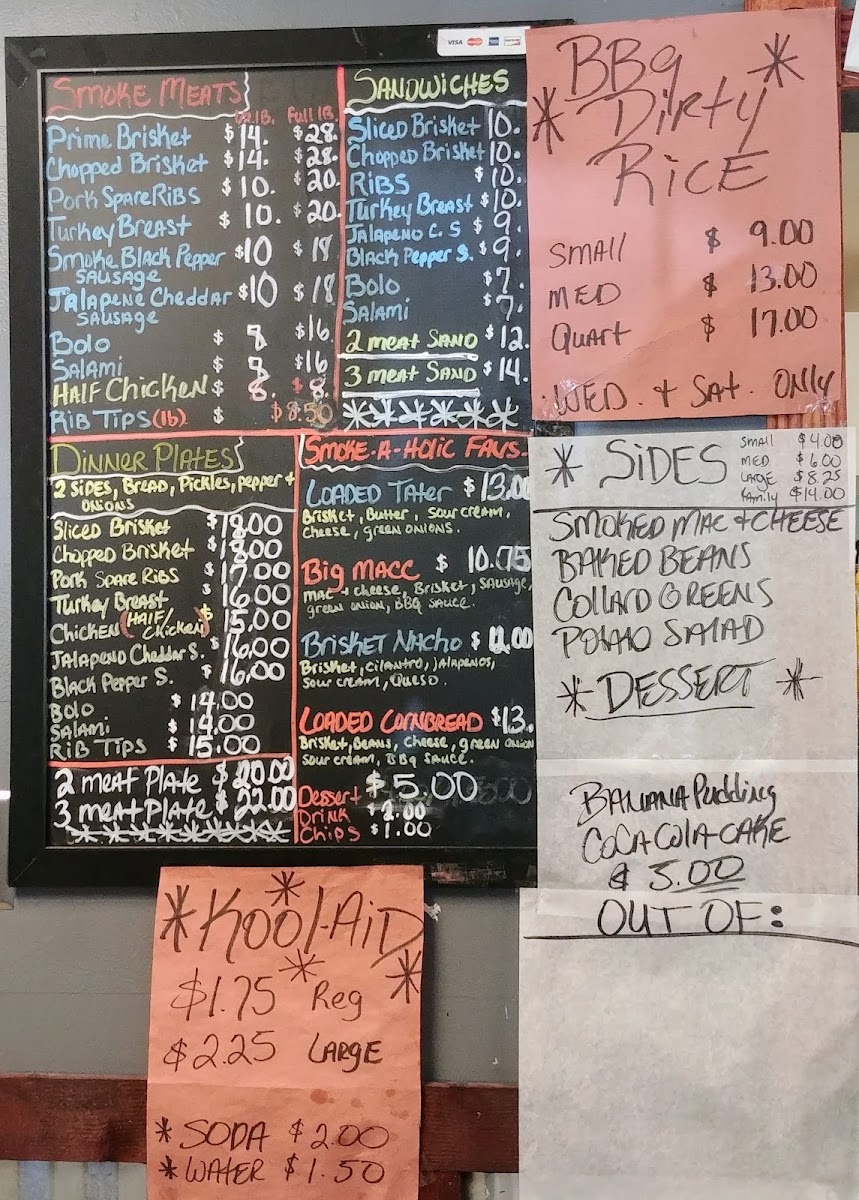 VISA
SMOKE MEATS
1/2 lB. Full lB.
Prime Brisket $14. $28.
Chopped Brisket $14. $28.
Pork Spare Ribs $10. $20.
Turkey Breast $10. $20.
Smoke Black Pepper $10 $18
SAUSAGE
Jalapene Cheddar $10 $18
SAUSAGE
Bolo $8 $16
Salami $8 $16
HALF Chicken $8. $8.
RiB Tips (lb) $ $8.50
SANDWICHES
Sliced Brisket 10.
Chopped Brisket 10.
RIBS $10.
Turkey Breast $10.
Jalapeno C. S $9.
Black Pepper S. $9.
Bolo $7.
Salami $7.
2 meat SAND $12.
3 meat SAND $14.
DINNER PLATES
2 SIDES, BREAD, Pickles, pepper +
ONIONS
Sliced Brisket $18.00
Chopped Brisket $18.00
Pork Spare Ribs $17.00
Turkey Breast $16.00
Chicken (HALF/Chicken) $15.00
Jalapeno Cheddar S. $16.00
Black Pepper S. $16.00
Bolo $14.00
Salami $14.00
RiB Tips $15.00
2 meat Plate $20.00
3 meat Plate $22.00
SMOKE-A-HOLIC FAVS.
LOADED Tater $13.00
Brisket, Butter, Sour cream,
cheese, green onions.
Big MACC $10.75
mac + cheese, Brisket, Sausage,
green onion, BBQ SAUCE.
Brisket Nacho
Brisket, Cilantro, jalapenos,
Sour cream, Queso.
LOADED CORNBREAD $13.
Brisket, Beans, cheese, green onion
sour cream, BBq sauce.
Dessert $5.00
DRINK $2.00
CHiPS $1.00
BBQ
* DiRTy *
RiCE
SMAll $ 9.00
MED $ 13.00
QuARt $ 17.00
WED. + SAt. ONly
* SiDES
SMAll $4.00
MED $6.00
LARGE $8.25
FAMily $14.00
SMOKED MAC + CHEESE
BAKED BEANS
COLLARD GREENS
POTATO SALAD
* DESSERT *
BANANA Pudding
COCA COlA CAKE
$ 5.00
OUT OF:
* KOOl-AiD *
$1.75 Reg
$2.25 LARGE
* SODA $2.00
* WATER $1.50